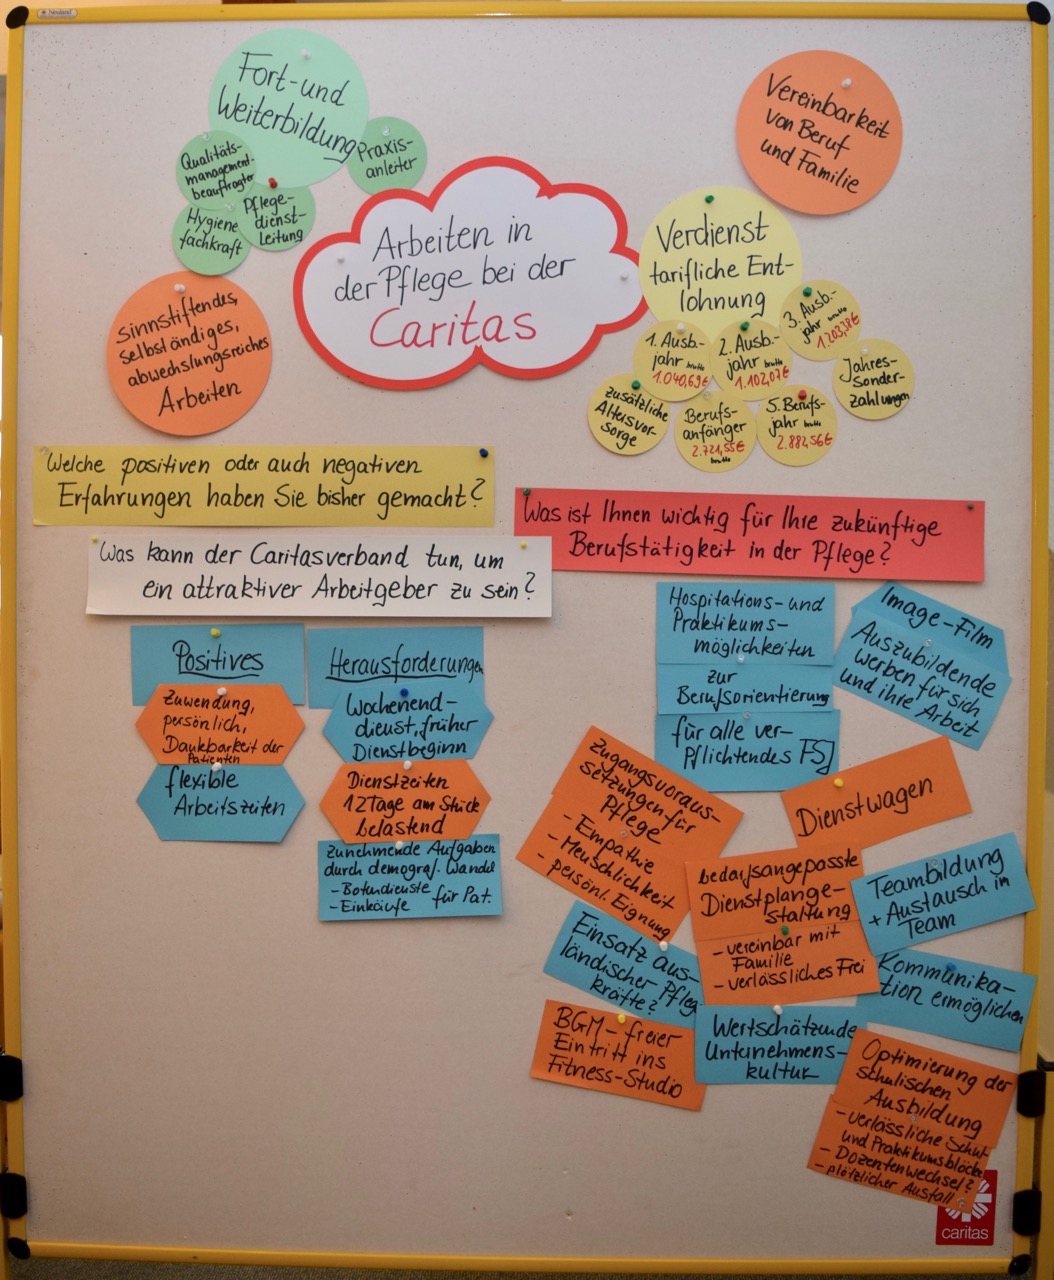 Neuland
Fort- und
Weiterbildung
Qualitäts-
management-
beauftragter
Praxis-
anleiter
Hygiene
fachkraft
Pflege-
dienst-
Leitung
sinnstiftendes,
selbständiges,
abwechslungsreiches
Arbeiten
Arbeiten in
der Pflege bei der
Caritas
Vereinbarkeit
von Beruf
und Familie
Verdienst
tarifliche Ent-
lohnung
1. Ausb.-
jahr brutto
1.040,69€
2. Ausb.-
jahr brutto
1.102,07€
3. Ausb.-
jahr brutto
1.203,38€
zusätzliche
Altersvor-
sorge
Berufs-
anfänger
2.721,55€
brutto
5. Berufs-
jahr brutto
2.882,56€
Jahres-
Sonder-
zahlungen
Welche positiven oder auch negativen
Erfahrungen haben Sie bisher gemacht?
Was kann der Caritasverband tun, um
ein attraktiver Arbeitgeber zu sein?
Was ist Ihnen wichtig für Ihre zukünftige
Berufstätigkeit in der Pflege?
Positives
Zuwendung,
persönlich,
Dankbarkeit der
Patienten
flexible
Arbeitszeiten
Herausforderungen
Wochenend-
dienst, früher
Dienstbeginn
Dienstzeiten
12 Tage am Stück
belastend
Zunehmende Aufgaben
durch demograf. Wandel
- Botendienste für Pat.
- Einkäufe
Hospitations- und
Praktikums-
möglichkeiten
zur
Berufsorientierung
für alle ver-
pflichtendes FSJ
Image-Film
Auszubildende
werben für sich
und ihre Arbeit
Zugangsvoraus-
setzungen für
Pflege
- Empathie
- Menschlichkeit
- persönl. Eignung
Dienstwagen
bedarfsangepasste
Dienstplange-
staltung
- vereinbar mit
Familie
- verlässliches Frei
Teambildung
+ Austausch in
Team
Einsatz aus-
ländischer Pfleg
kräfte?
Kommunika-
tion ermöglichen
BGM - freier
Eintritt ins
Fitness-Studio
Wertschätzende
Unternehmens-
kultur
Optimierung der
schulischen
Ausbildung
- verlässliche Schul-
und Praktikumsblöcke
- Dozentenwechsel?
- plötzlicher Ausfall
caritas